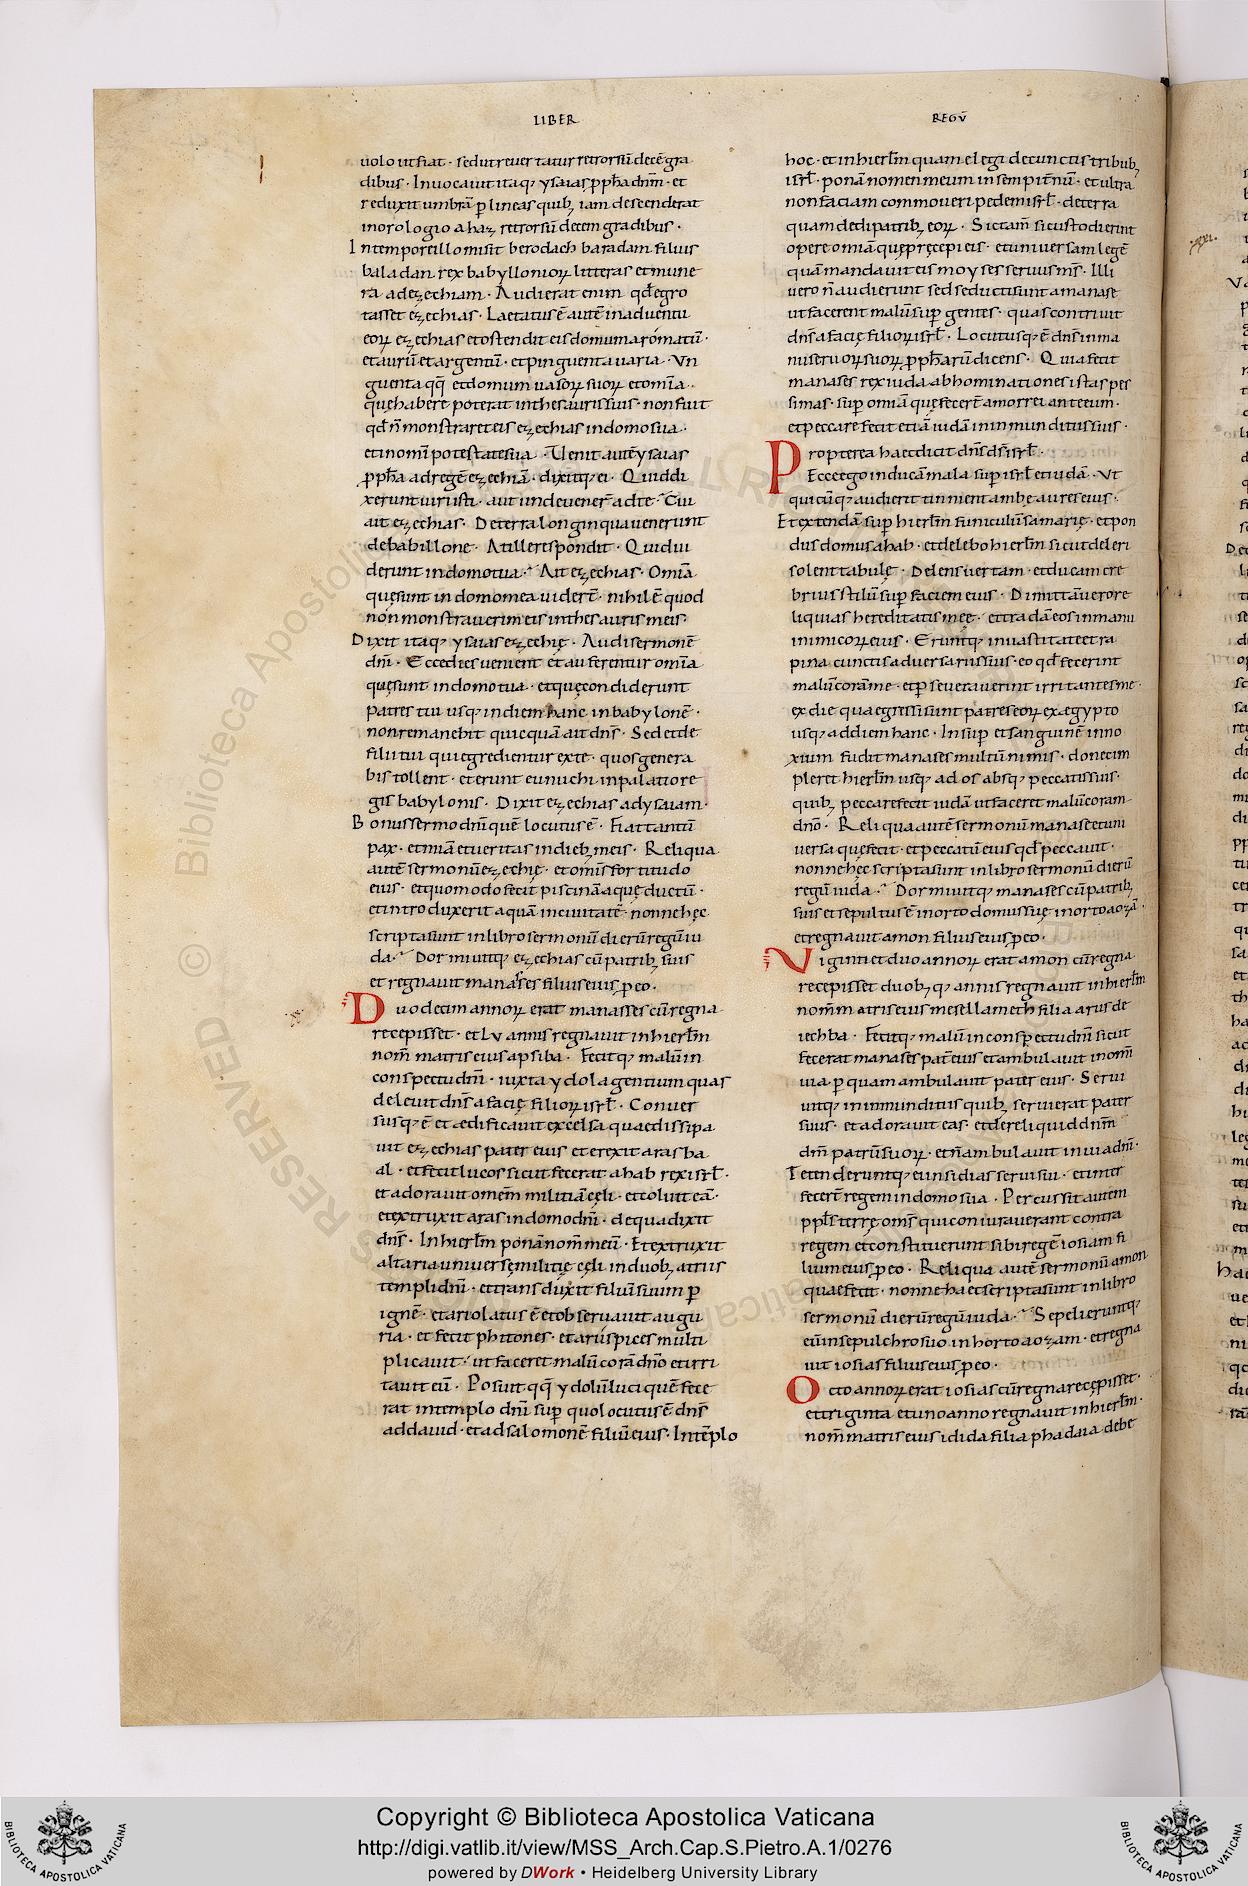 LIBER
REGŪ
uolo ut fiat · sed ut reuertatur retrorsū decē gra
dibus · Inuocauit itaq; ysaias pphā dnm̄ · et
reduxit umbrā p lineas quib; iam descenderat
in orologio ahaz retrorsū decem gradibus ·
In tempore illo misit berodach baradam filius
baladan rex babylloniorꝝ litteras et mune
ra ad ezechiam · Audierat enim qđ egro
tasset ezechias · Laetatus ē autē in aduentu
eorꝝ ezechias et ostendit eis domum aromatū ·
et aurū et argentū · et pinguenta uaria · Un
guenta qq̄ et domum uasorꝝ suorꝝ et omīa ·
quę habere poterat in thesauris suis · non fuit
qđ ñ monstraret eis ezechias in domo sua ·
et in omī potestate sua · Uenit autē ysaias
pphā ad regē ezechiā · dixitq; ei · Quid di
xerunt uiri isti · aut unde uener̄ ad te · Cui
ait ezechias · De terra longinqua uenerunt
de babillone · At ille respondit · Quid ui
derunt in domo tua · Ait ezechias · Omīa
quę sunt in domo mea uidert̄ · nihil ē quod
non monstrauerim eis in thesauris meis ·
Dixit itaq; ysaias ezechię · Audi sermonē
dnī · Ecce dies uenient et auferentur omīa
quę sunt in domo tua · et quę condiderunt
patres tui usq; in diem hanc in babylonē ·
non remanebit quicquā ait dns̄ · Sed et de
filii tui qui egredientur ex te · quos genera
bis tollent · et erunt eunuchi in palatio re
gis babylonis · Dixit ezechias ad ysaiam ·
Bonus sermo dnī quē locutus ē · Fiat tantū
pax · et miā et ueritas in dieb; meis · Reliqua
autē sermonū ezechię · et omīs fortitudo
eius · et quomodo fecit piscinā aquę ductū ·
et introduxerit aquā in ciuitatē · nonne hęc
scripta sunt in libro sermonū dierū regū iu
da · Dormiuitq; ezechias cū patrib; suis
et regnauit manasses filius eius p eo ·
Duodecim annorꝝ erat manasses cū regna
recepisset · et LV annis regnauit in hierlm̄
nom̄ matris eius apsiba · Fecitq; malū in
conspectu dnī · iuxta ydola gentium quas
deleuit dns̄ a facię filiorꝝ isrl̄ · Conuer
susq; ē et ædificauit excelsa quae dissipa
uit ezechias pater eius et erexit aras ba
al · et fecit lucos sicut fecerat ahab rex isrl̄ ·
et adorauit omēm militiā cęli · et coluit eā ·
et extruxit aras in domo dnī · de qua dixit
dns̄ · In hierlm̄ ponā nom̄ meū · Et extruxit
altaria uniuersę militię cęli in duob; atriis
templi dnī · et transduxit filiū suum p
ignē · et ariolatus ē et obseruauit augu
ria · et fecit phitones · et aruspices multi
plicauit · ut faceret malū corā dnō et irri
taret eū · Posuit qq̄ ydolū luci quē fece
rat in templo dnī sup quo locutus ē dns̄
ad dauid · et ad salomonē filiū eius · In tēplo
hoc · et in hierlm̄ quam elegi de cunctis tribub;
isrl̄ · ponā nomen meum in sempitnū · et ultra
non faciam commoueri pedem isrl̄ · de terra
quam dedi patrib; eorꝝ · Si c̄tam̄ si custodierint
opere omīa quę pręcepi eis · et uniuersam legē
quā mandauit eis moyses seruus ms̄ · Illi
uero ñ audierunt sed seducti sunt a manase
ut facerent malū sup gentes · quas contriuit
dns̄ a facię filiorꝝ isrl̄ · Locutusq; ē dns̄ in ma
nu seruorꝝ suorꝝ pphārū dicens · Quia fecit
manases rex iuda abhominationes istas pes
simas · sup omīa quę fecert̄ amorrei ante eum ·
et peccare fecit etiā iudā in inmunditiis suis ·
Propterea haec dicit dns̄ ds̄ isrl̄ ·
Ecce ego inducā mala sup isrl̄ et iudā · Ut
quicūq; audierit tinnient ambę aures eius ·
Et extendā sup hierlm̄ funiculū samarię · et pon
dus domus ahab · et delebo hierlm̄ sicut deleri
solent tabulę · Delens uertam · et ducam cre
brius stilū sup faciem eius · Dimittā uero re
liquias hereditatis meę · et tradā eos in manu
inimicorꝝ eius · Eruntq; in uastitate et ra
pina cunctis aduersariis suis · eo qđ fecerint
malū corā me · et pseuerauerint irritantes me ·
ex die qua egressi sunt patres eorꝝ ex aegypto
usq; ad diem hanc · Insup et sanguinē inno
xium fudit manases multū nimis · donec im
pleret hierlm̄ usq; ad os absq; peccatis suis ·
quib; peccare fecit iudā ut faceret malū coram
dnō · Reliqua autē sermonū manase et uni
uersa quę fecit · et peccatū eius qđ peccauit ·
nonne hęc scripta sunt in libro sermonū dierū
regū iuda · Dormiuitq; manases cū patrib;
suis et sepultus ē in orto domus suę in orto aozā ·
et regnauit amon filius eius p eo ·
Viginti et duo annorꝝ erat amon cū regna
recepisset duob; q; annis regnauit in hierlm̄
nom̄ matris eius mesellameth filia arus de
iechba · Fecitq; malū in conspectu dnī sicut
fecerat manases pat̄ eius et ambulauit in omī
uia · p quam ambulauit pater eius · Serui
uitq; inmunditiis quib; seruierat pater
suus · et adorauit eas · et dereliquid dnm̄
dm̄ patrū suorꝝ · et ñ ambulauit in uia dnī ·
Tetenderuntq; ei insidias serui sui · et inter
fecert̄ regem in domo sua · Percussit autem
ppls̄ terrę oms̄ qui coniurauerant contra
regem et constituerunt sibi regē iosiam fi
lium eius p eo · Reliqua autē sermonū amon
quae fecit · nonne haec scripta sunt in libro
sermonū dierū regū iuda · Sepelieruntq;
eū in sepulchro suo in horto aozam · et regna
uit iosias filius eius p eo ·
Octo annorꝝ erat iosias cū regna recępisset ·
et triginta et uno anno regnauit in hierlm̄ ·
nom̄ matris eius idida filia phadaia de be
Copyright © Biblioteca Apostolica Vaticana
http://digi.vatlib.it/view/MSS_Arch.Cap.S.Pietro.A.1/0276
powered by DWork • Heidelberg University Library
BIBLIOTECA APOSTOLICA VATICANA
BIBLIOTECA APOSTOLICA VATICANA